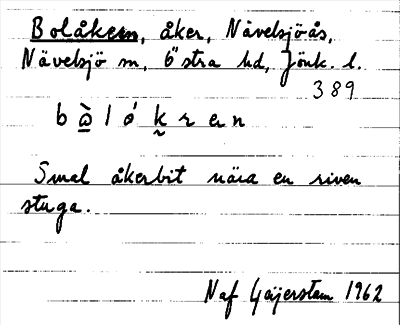 Bolåkern, åker, Nävelsjöås,
Nävelsjö sn, Östra hd, Jönk. l.
389
b ὼ l ǿ k r e n
Smal åkerbit nära en riven
stuga.
Naf Gejerstam 1962